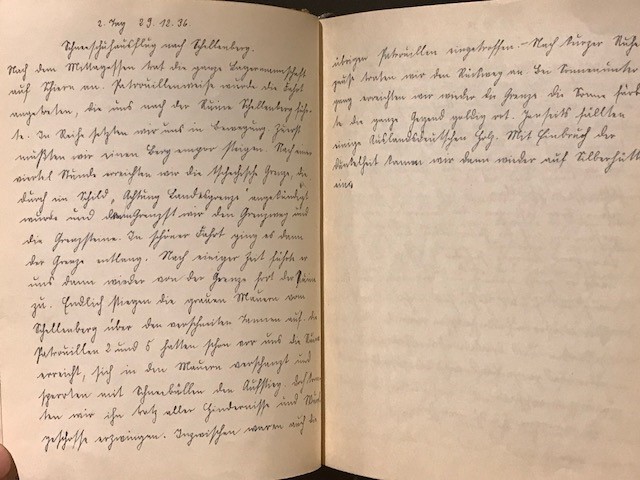 2. Tag 29.12.36.
Schneeschuhausflug nach Schellenberg.
Nach dem Mittagessen trat die ganze Lagermannschaft
auf Schiern an. Patrouillenweise wurde die Fahrt
angetreten, die uns nach der Ruine Schellenberg führ-
te. In Reihe setzten wir uns in Bewegung. Zuerst
mußten wir einen Berg empor steigen. Nach einer
viertel Stunde erreichten wir die tschechische Grenze, die
durch ein Schild, Achtung Landesgrenze" angekündigt
wurde und dann wir den Grenzweg und
die Grenzsteine. In schöner Fahrt ging es dann
der Grenze entlang. Nach einiger Zeit führte er
uns dann wieder von der Grenze fort der Ruine
zu. Endlich stiegen die grauen Mauern von
Schellenberg über den verschneiten Tannen auf. Die
Patrouillen 2 und 5 hatten schon vor uns die Ruine
erreicht, sich in den Mauern verschanzt und
sperrten mit Schneebällen den Aufstieg. Doch konn-
ten wir ihn trotz aller Hindernisse und
geschosse erzwingen. Inzwischen waren auch die
übrigen Patrouillen eingetroffen. - Nach kurzer Ruhe-
pause traten wir den Rückweg an. Bei Sonnenunter-
gang erreichten wir wieder die Grenze die Sonne färb-
te die ganze Gegend goldig rot. Jenseits fällten
einige Auslandsdeutschen Holz. Mit Einbruch der
Dunkelheit kamen wir dann wieder auf Silberhütte
an.